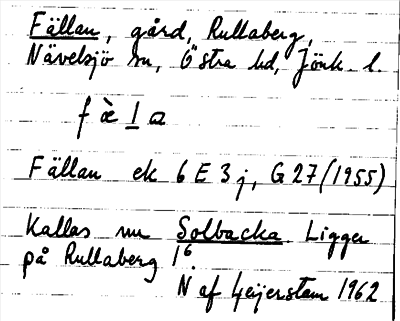 Fällan, gård, Rullaberg,
Nävelsjö sn, Östra hd, Jönk. l.
f ä̀ l a
Fällan ek 6 E 3 j, G 27 (1955)
Kallas nu Solbacka. Ligger
på Rullaberg 1⁶.
N af Geijerstam 1962